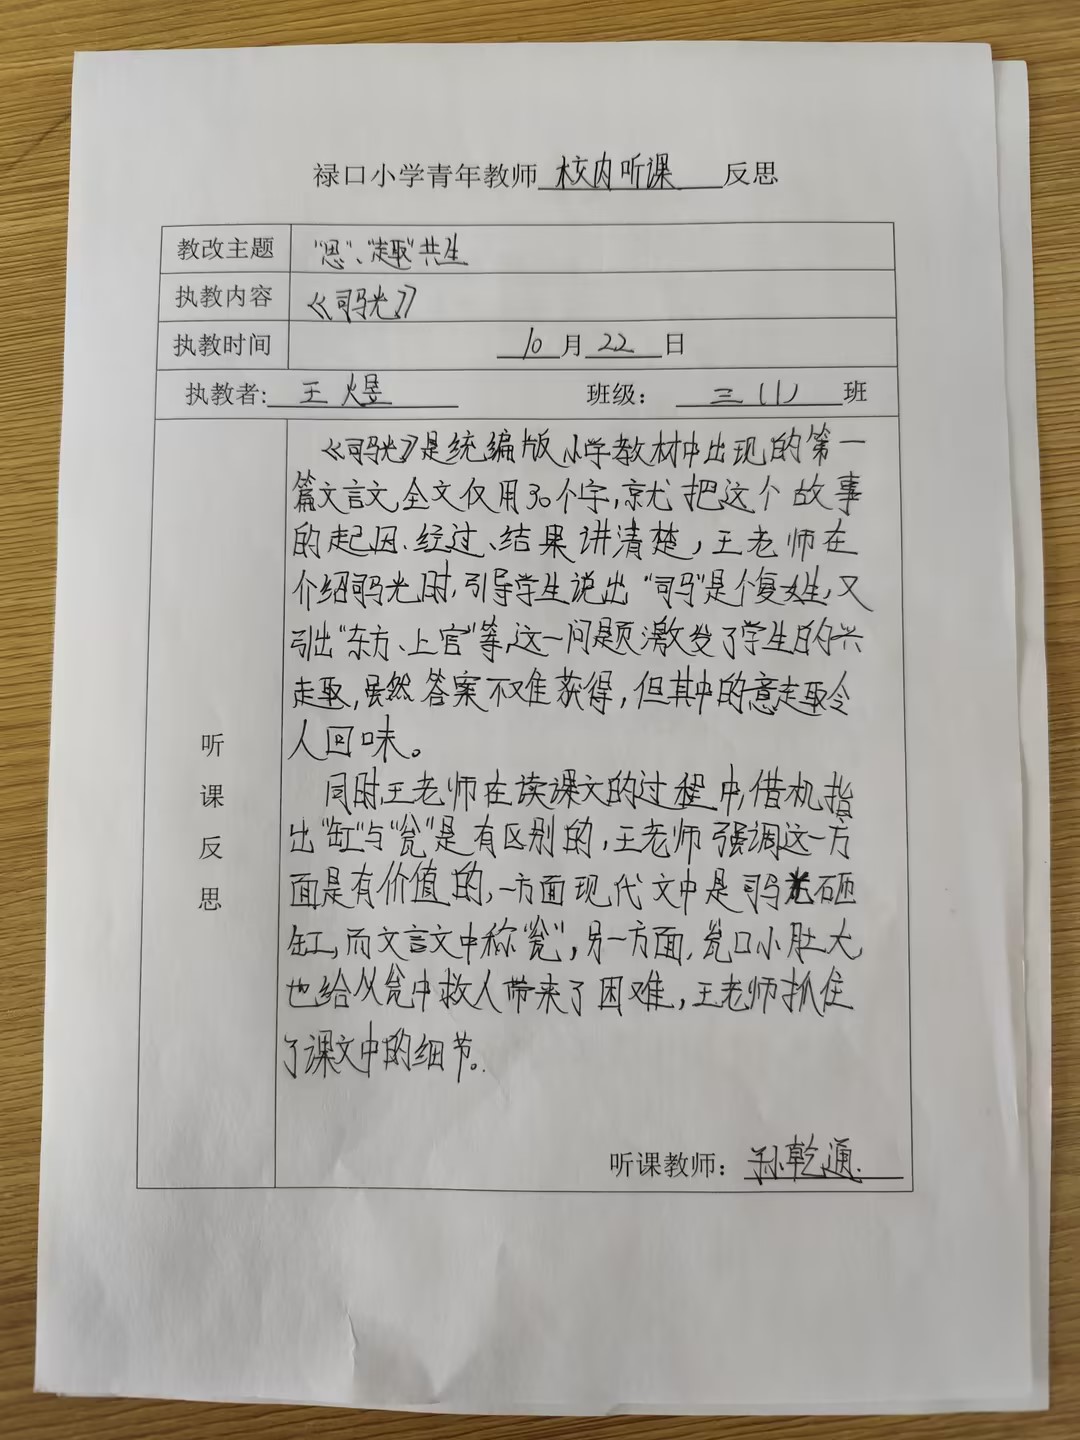 禄口小学青年教师 校内听课 反思
教改主题 "思"、"趣"共生
执教内容 《司马光》
执教时间 10月22日
执教者: 王煜 班级： 三（1）班
《司马光》是统编版小学教材中出现的第一
篇文言文,全文仅用30个字,就把这个故事
的起因、经过、结果讲清楚，王老师在
介绍司马光时,引导学生说出"司马"是个复姓,又
引出"东方、上官"等,这一问题激发了学生的兴
趣,虽然答案不难获得，但其中的意趣令
人回味。
同时,王老师在读课文的过程中,借机指
出"缸"与"瓮"是有区别的，王老师强调这一方
面是有价值的,一方面现代文中是司马光砸
缸,而文言文中称"瓮"，另一方面,瓮口小肚大,
也给从瓮中救人带来了困难，王老师抓住
了课文中的细节。
听
课
反
思
听课教师： 孙乾通